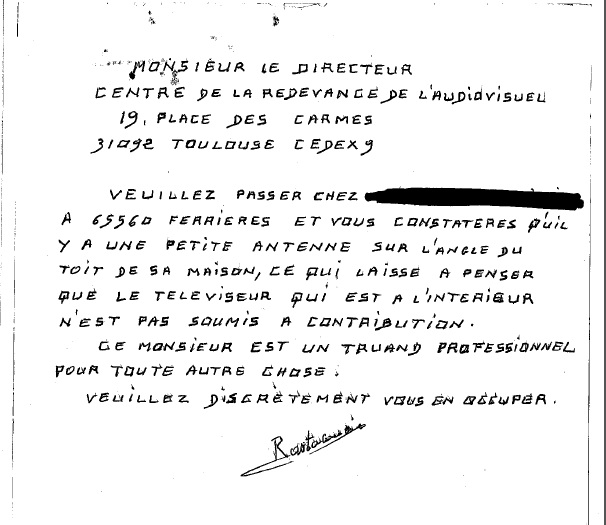 MONSIEUR LE DIRECTEUR
CENTRE DE LA REDEVANCE DE L'AUDIOVISUEL
19, PLACE DES CARMES
31092 TOULOUSE CEDEX 9
VEUILLEZ PASSER CHEZ
A 65560 FERRIERES ET VOUS CONSTATERES QU'IL
Y A UNE PETITE ANTENNE SUR L'ANGLE DU
TOIT DE SA MAISON, CE QUI LAISSE A PENSER
QUE LE TELEVISEUR QUI EST A L'INTERIEUR
N'EST PAS SOUMIS A CONTRIBUTION.
CE MONSIEUR EST UN TRUAND PROFESSIONNEL
POUR TOUTE AUTRE CHOSE.
VEUILLEZ DISCRÈTEMENT VOUS EN OCCUPER.